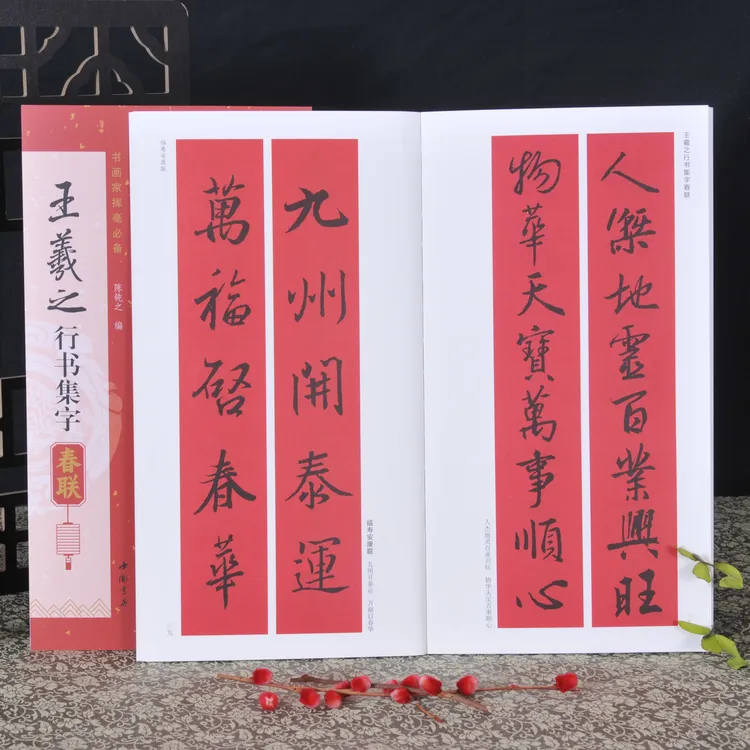 书画家挥毫必备
王羲之
行书集字
春联
陈佗之 编
中国书店
王羲之行书集字春联
人傑地靈百業興旺
物華天寶萬事順心
人杰地灵百业兴旺 物华天宝万事顺心
福寿安康联
九州開泰運
萬福啓春華
福寿安康联
九州开泰运 万福启春华